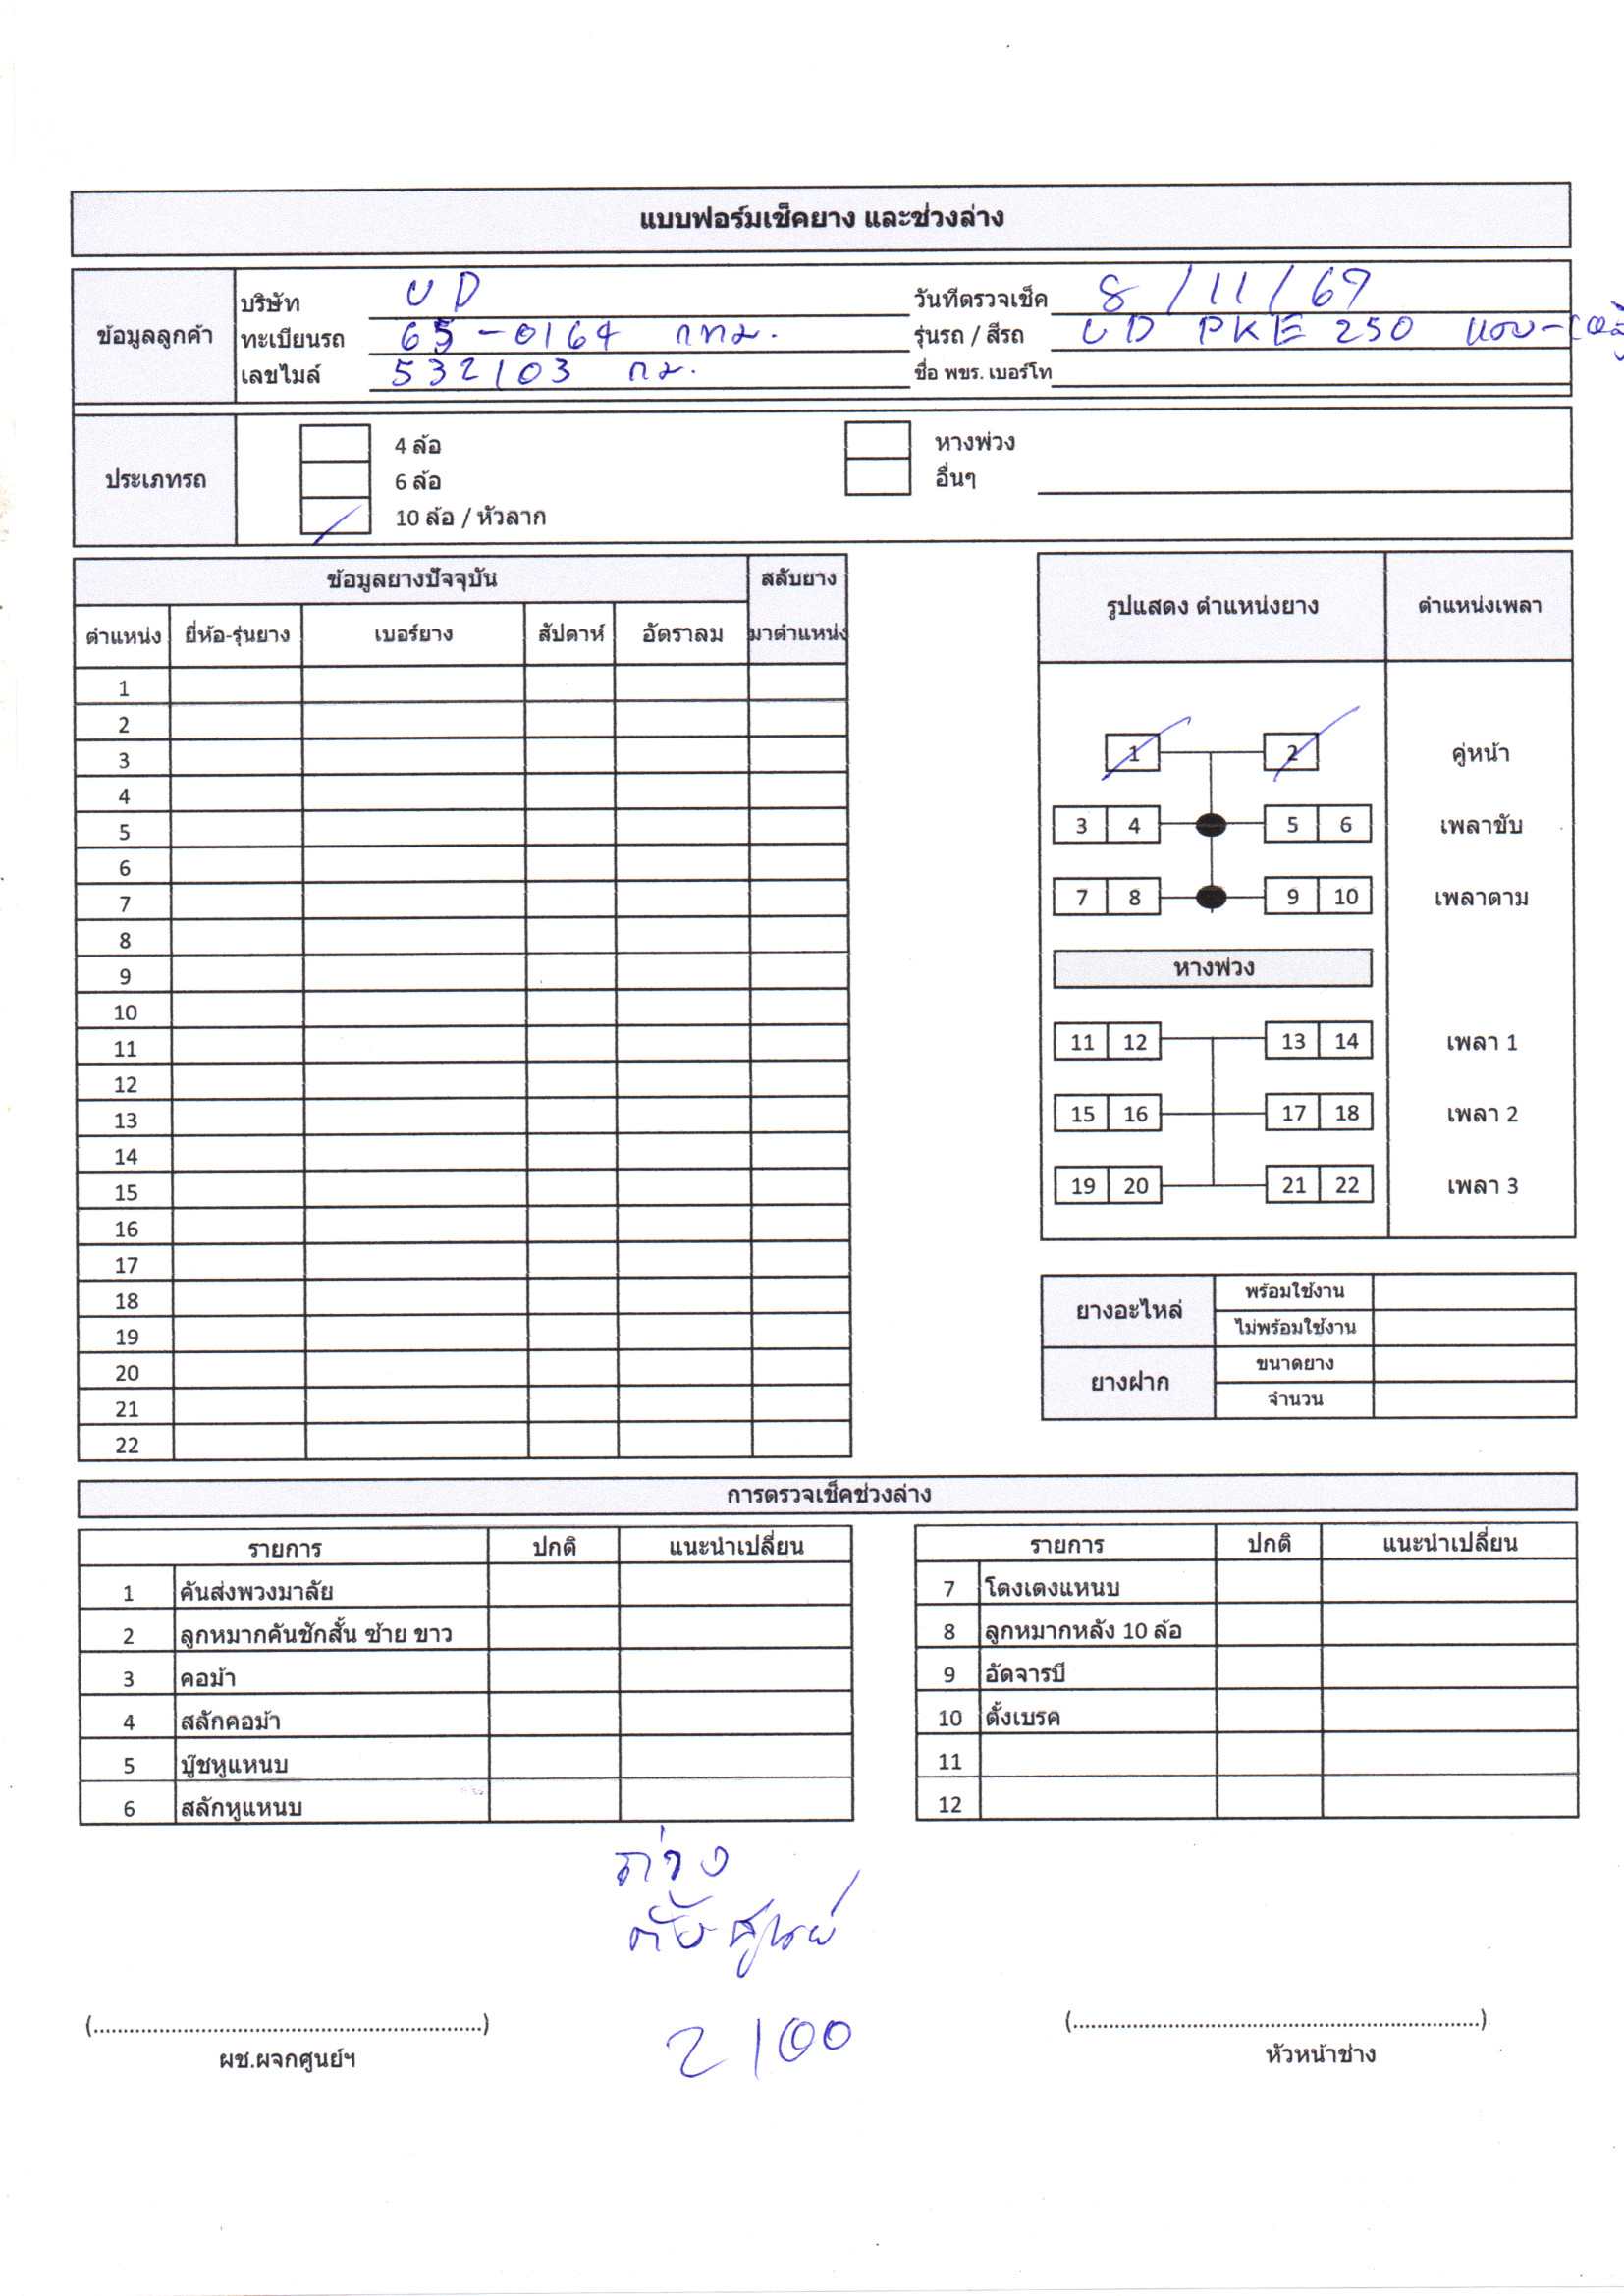 แบบฟอร์มเช็คยาง และช่วงล่าง
ข้อมูลลูกค้า
บริษัท UD วันที่ตรวจเช็ค 8/11/67
ทะเบียนรถ 65-0164 กทม. รุ่นรถ / สีรถ UD PKE 250
เลขไมล์ 532103 กม. ชื่อ พขร. เบอร์โท
ประเภทรถ
4 ล้อ หางพ่วง
6 ล้อ อื่นๆ
10 ล้อ / หัวลาก
ข้อมูลยางปัจจุบัน สลับยาง
ตำแหน่ง ยี่ห้อ-รุ่นยาง เบอร์ยาง สัปดาห์ อัตราลม มาตำแหน่ง
1
2
3
4
5
6
7
8
9
10
11
12
13
14
15
16
17
18
19
20
21
22
รูปแสดง ตำแหน่งยาง ตำแหน่งเพลา
1 2 คู่หน้า
3 4 5 6 เพลาขับ
7 8 9 10 เพลาตาม
หางพ่วง
11 12 13 14 เพลา 1
15 16 17 18 เพลา 2
19 20 21 22 เพลา 3
ยางอะไหล่ พร้อมใช้งาน
ไม่พร้อมใช้งาน
ยางฝาก ขนาดยาง
จำนวน
การตรวจเช็คช่วงล่าง
รายการ ปกติ แนะนำเปลี่ยน
1 คันส่งพวงมาลัย
2 ลูกหมากคันชักสั้น ซ้าย ขาว
3 คอม้า
4 สลักคอม้า
5 บู๊ชหูแหนบ
6 สลักหูแหนบ
รายการ ปกติ แนะนำเปลี่ยน
7 โตงเตงแหนบ
8 ลูกหมากหลัง 10 ล้อ
9 อัดจารบี
10 ตั้งเบรค
11
12
ถ่วง
ตั้งศูนย์
2100
(................................................................)
ผช.ผจกศูนย์ฯ
(................................................................)
หัวหน้าช่าง